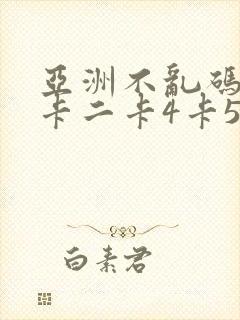 亞洲不亂碼
卡二卡4卡5
白素君